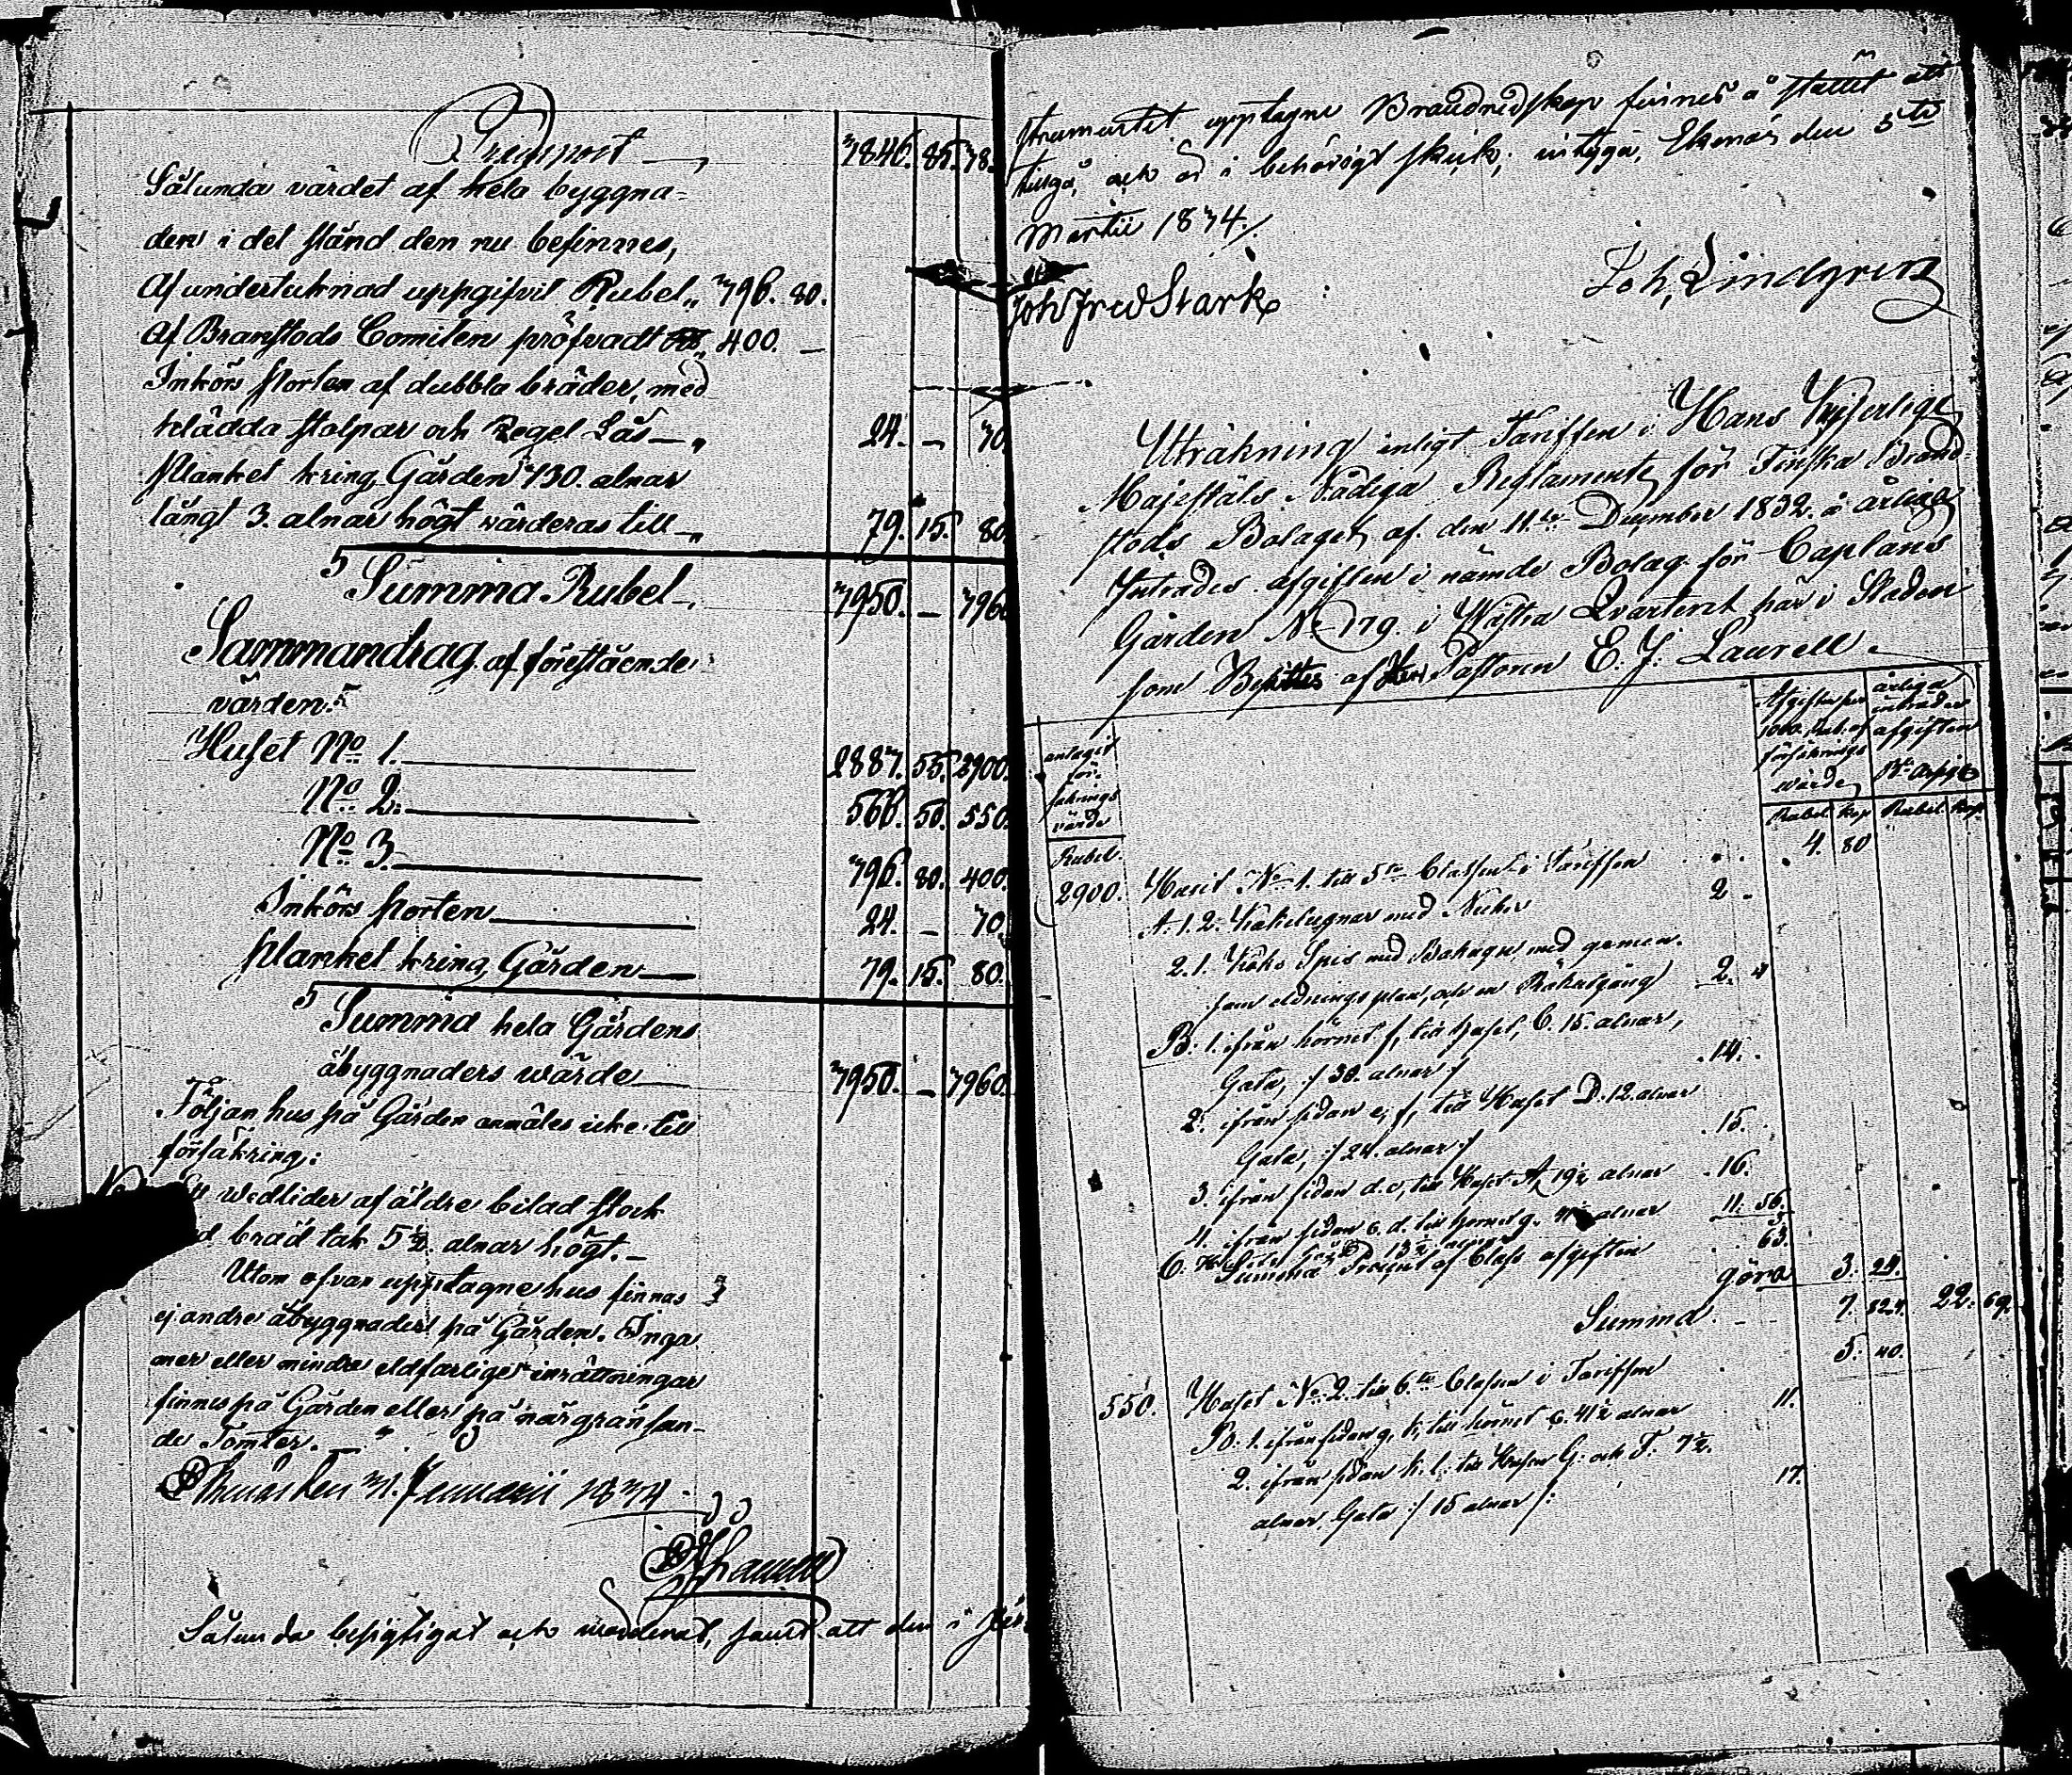 Transport 7846. 85. 78
Sålunda värdet af hela byggna-
den i det stånd den nu befinnes,
Af undertecknad uppgifvit Rubel „ 796. 80.
Af Branstods Comiten pröfvadt „ 400. —
Inkörs porten af dubbla bräder, med
klädda stolpar och Regel Lås — „ 24. — 70
Planket kring Gården 130. alnar
långt 3. alnar högt värderas till — „ 79. 15. 80
Summa Rubel 7950. — 796
Sammandrag af föreståënde
värden:
Huset No 1. 2887. 55. 2900.
No 2. 566. 50. 550.
No 3. 796. 80. 400.
Inkörs porten 24. — 70.
planket kring Gården 79. 15. 80.
Summa hela Gårdens
åbyggnaders wärde 7950. — 7960.
Följan hus på Gården anmäles icke till
försäkring:
wedlider af äldre bilad stock
bräd tak 5 1/2. alnar högt. —
Utom ofvan upptagne hus finnas
ej andre åbyggnader på Gården. Inga
mer eller mindre eldfarlige inrättningar
finnes på Gården eller på närgränsan-
de Tomter. —
Ekenäs den 31. Januarii 1834
EJLaurell
Sålunda besigtigat och wärderat, samt att den i
upptagne Brandredskap finnes å stället att
tillgå, och är i behörigt skick, intyga, Ekenäs den 5te
Martii 1834.
Joh Fred Stark Joh, Lindgren
Uträkning enligt Tariffen i Hans Kejserlige
Majestäts Nådiga Reglamente för Finska Brand-
stods Bolaget af den 11te December 1832. å årliga
Intrades afgiften i nämde Bolag för Caplans
Gården No 179. i Wästra Qvarteret här i Staden
som Besittes af Pastoren E. J. Laurell.
antagit för- säkrings värde Rubel.
Afgiften per 1000. Rub. af försäkrings wärde Rubel Kop
årliga intrades afgiften Rubel. Kop.
2900. Huset No 1. till 5te Classen i Tariffen 4. 80
A. 1. 2. Kakelugnar med Nicher 2.
2. 1. Köks Spis med Bakugn med gemen-
sam eldnings plan, och en Rökusgång 2.
B. 1. ifrån hörnet f, till huset, C. 15. alnar,
Gata, :/ 30. alnar :/ 14.
2. ifrån sidan e, f, till Huset D. 12. alnar
Gata, :/ 24. alnar :/ 15.
3. ifrån sidan d. e, till Huset A, 19 1/2 alnar 16.
4. ifrån sidan c. d. till hörnet g. alnar 11.
Summa Procent af Class afgiften 63.
göra 3. 24.
Summa 7. 824. 22. 69.
550. Huset No 2. till 6te Classen i Tariffen 5. 40.
B. 1. ifrån sidan g, k, till hörnet c. 4 1/2 alnar 11.
2. ifrån sidan k. l. till Husen G: och F: 7 1/2.
alnar, Gata :/ 15 alnar /: 17.